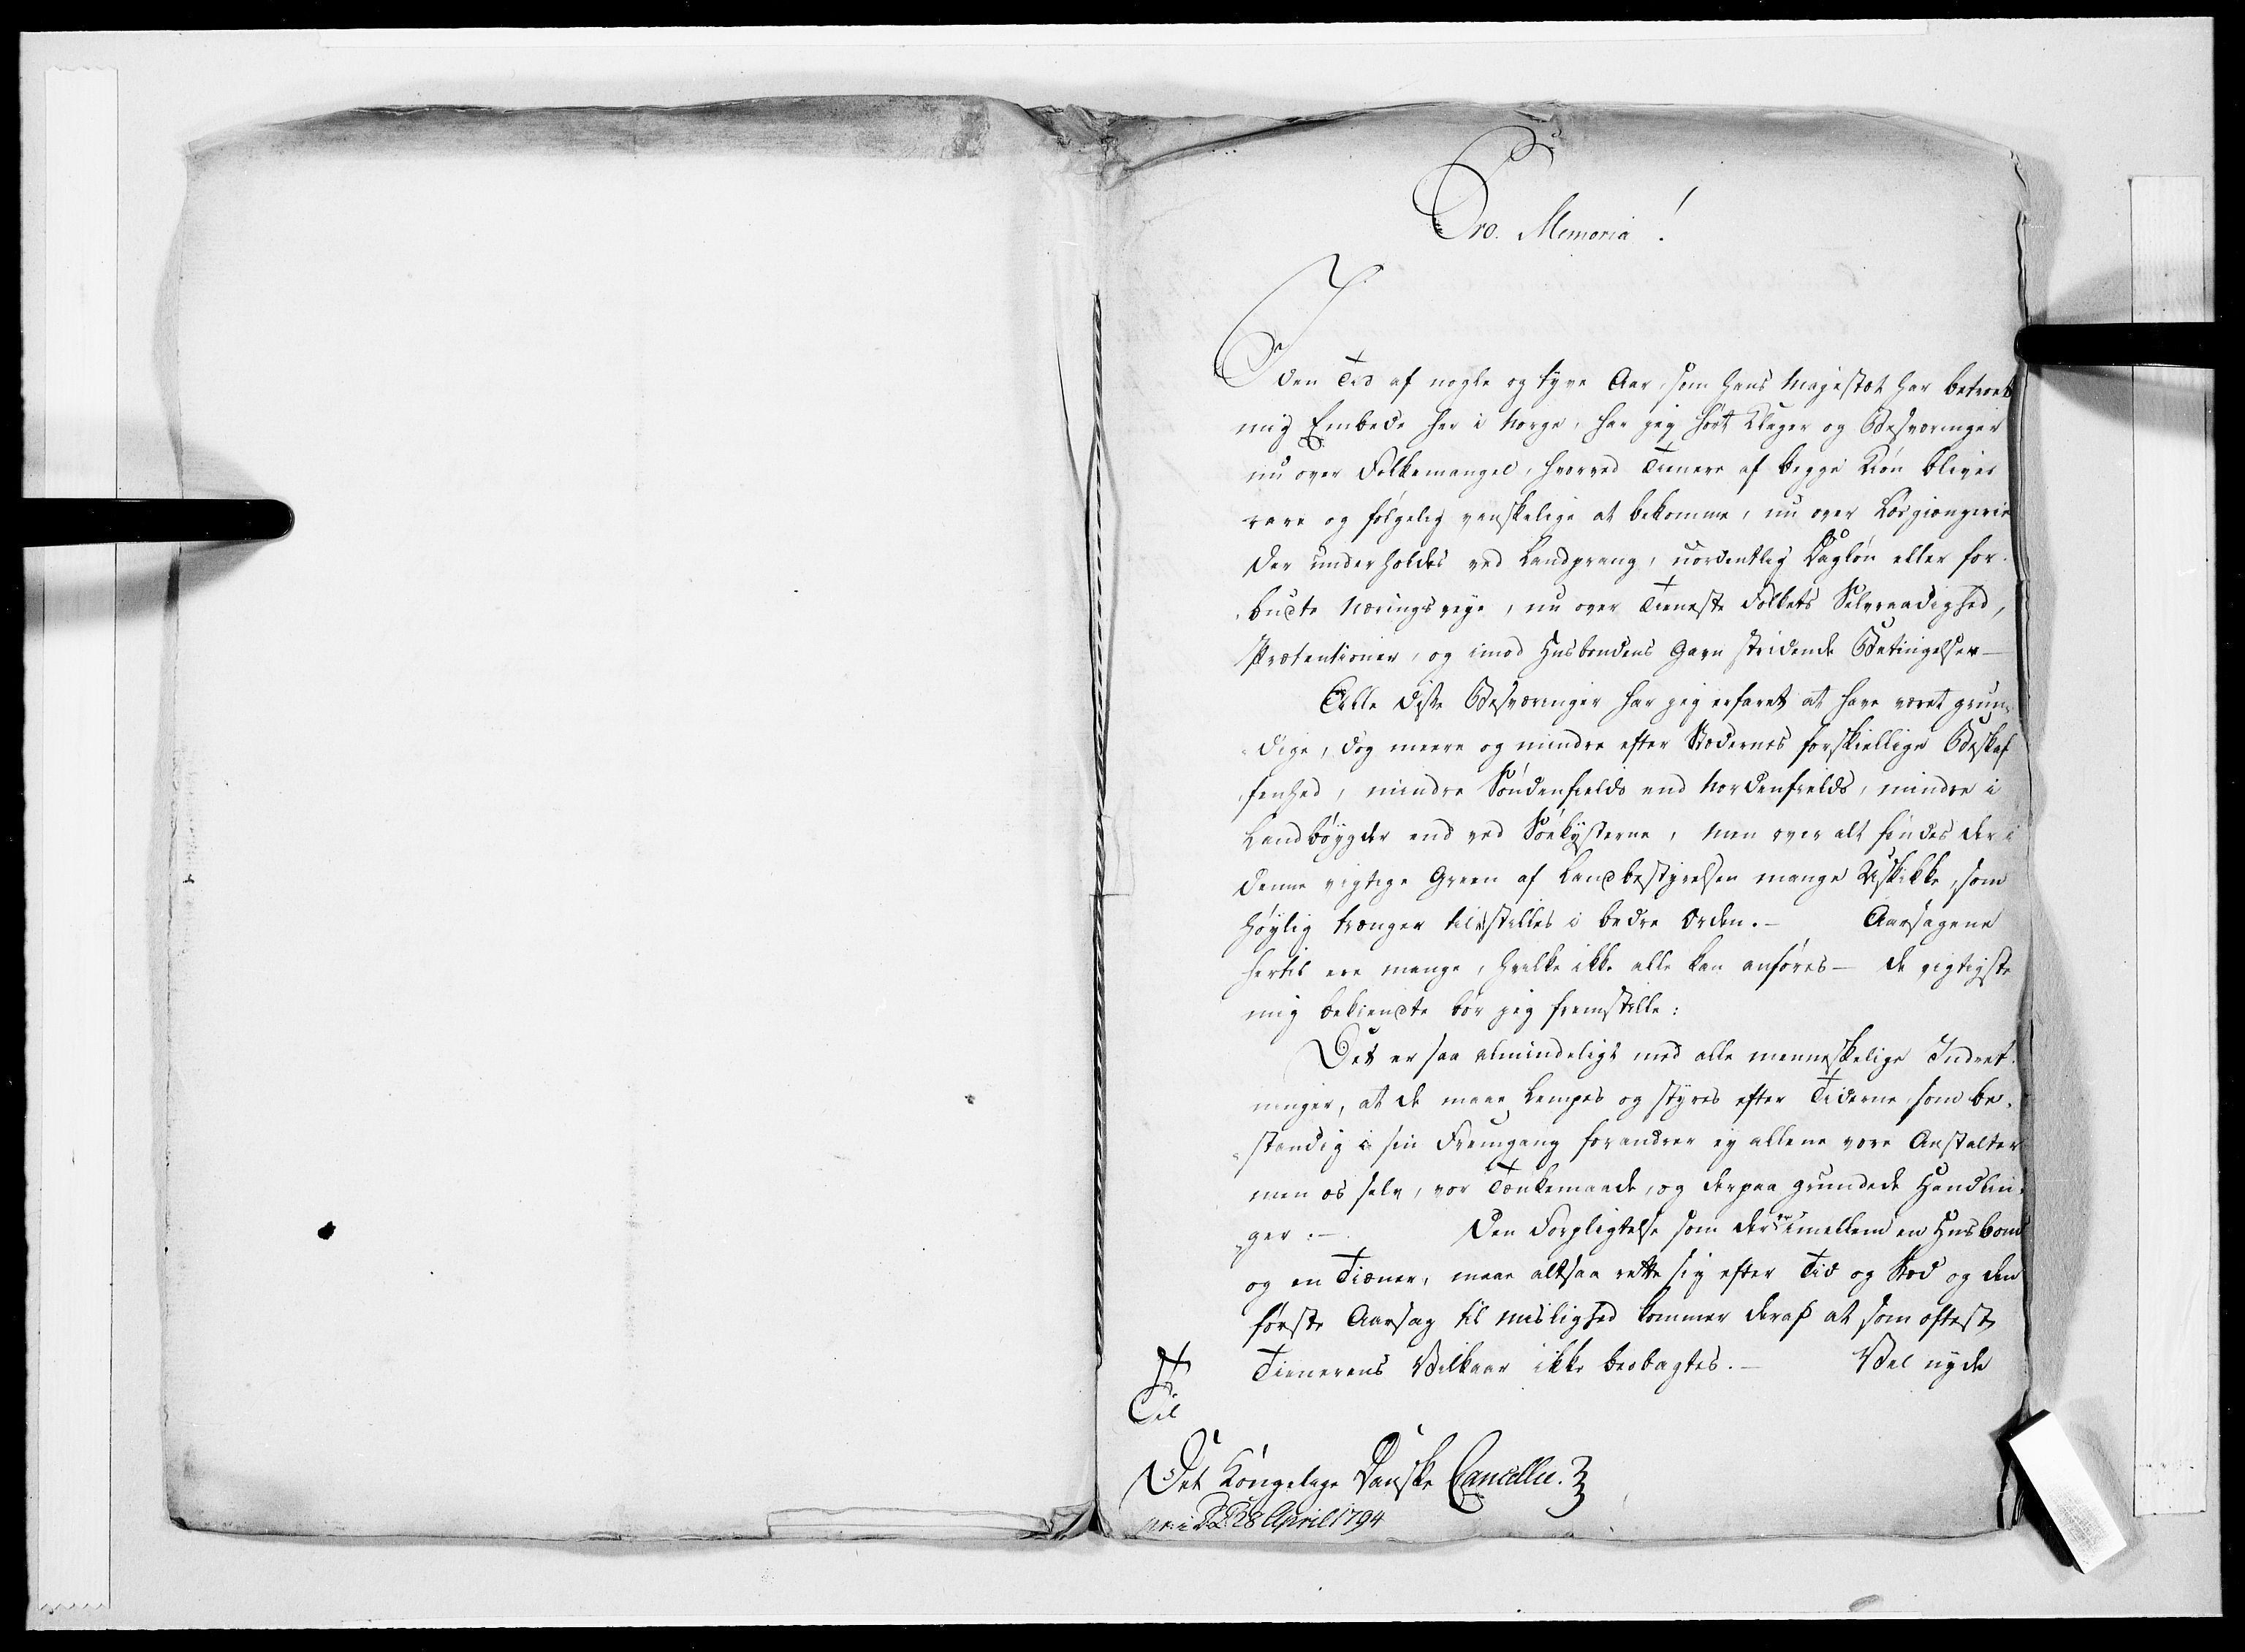 Pro. Memoria!
I den Tid af nogle og tyve Aar, som Hans Majestæt har betroet
mig Embede her i Norge, har jeg hørt Klager og Besværinger
nu over Folkemangel, hvorved Tienere af begge Kiøn bliver
rare og følgelig vanskelige at bekomme, nu over Løsgiængerie
der underholdes ved Landprang, uordentlig Dagløn eller for-
budte Næringsveye, nu over Tieneste Folkets Selvraadighed,
Prætentioner, og imod Husbondens Gavn stridende Betingelser—
Alle disse Besværinger har jeg erfaret at have været grun-
dige, dog meere og mindre efter Stædernes forskiellige Beskaf-
fenhed, mindre Søndenfields end Nordenfields, mindre i
Landbøygder end ved Søekysterne, men over alt findes der i
denne vigtige Green af Landbestyrelsen mange Uskikke, som
høylig trænger til stilles i bedre Orden.— Aarsagene
hertil ere mange, hvilke ikke alle kan anføres— de vigtigste
mig bekiendte bør jeg fremstille:
Det er saa almindeligt med alle menneskelige Indret-
ninger, at de maae lempes og styres efter Tiderne som be-
standig i sin Fremgang forandrer ey allene vore Anstalter
men os selv, vor Tænkemaade, og derpaa grundede Handlin-
ger.— Den Forpligtelse som der er imellem en Husbond
og en Tiener, maae altsaa rette sig efter Tid og Stæd og den
første Aarsag til Mislighed kommer deraf at som oftest
Tienerens Vilkaar ikke beobagtes.— Vel nyde
Til
Det Kongelige Danske Cancellie.
pr: i DC. 28 April 1794